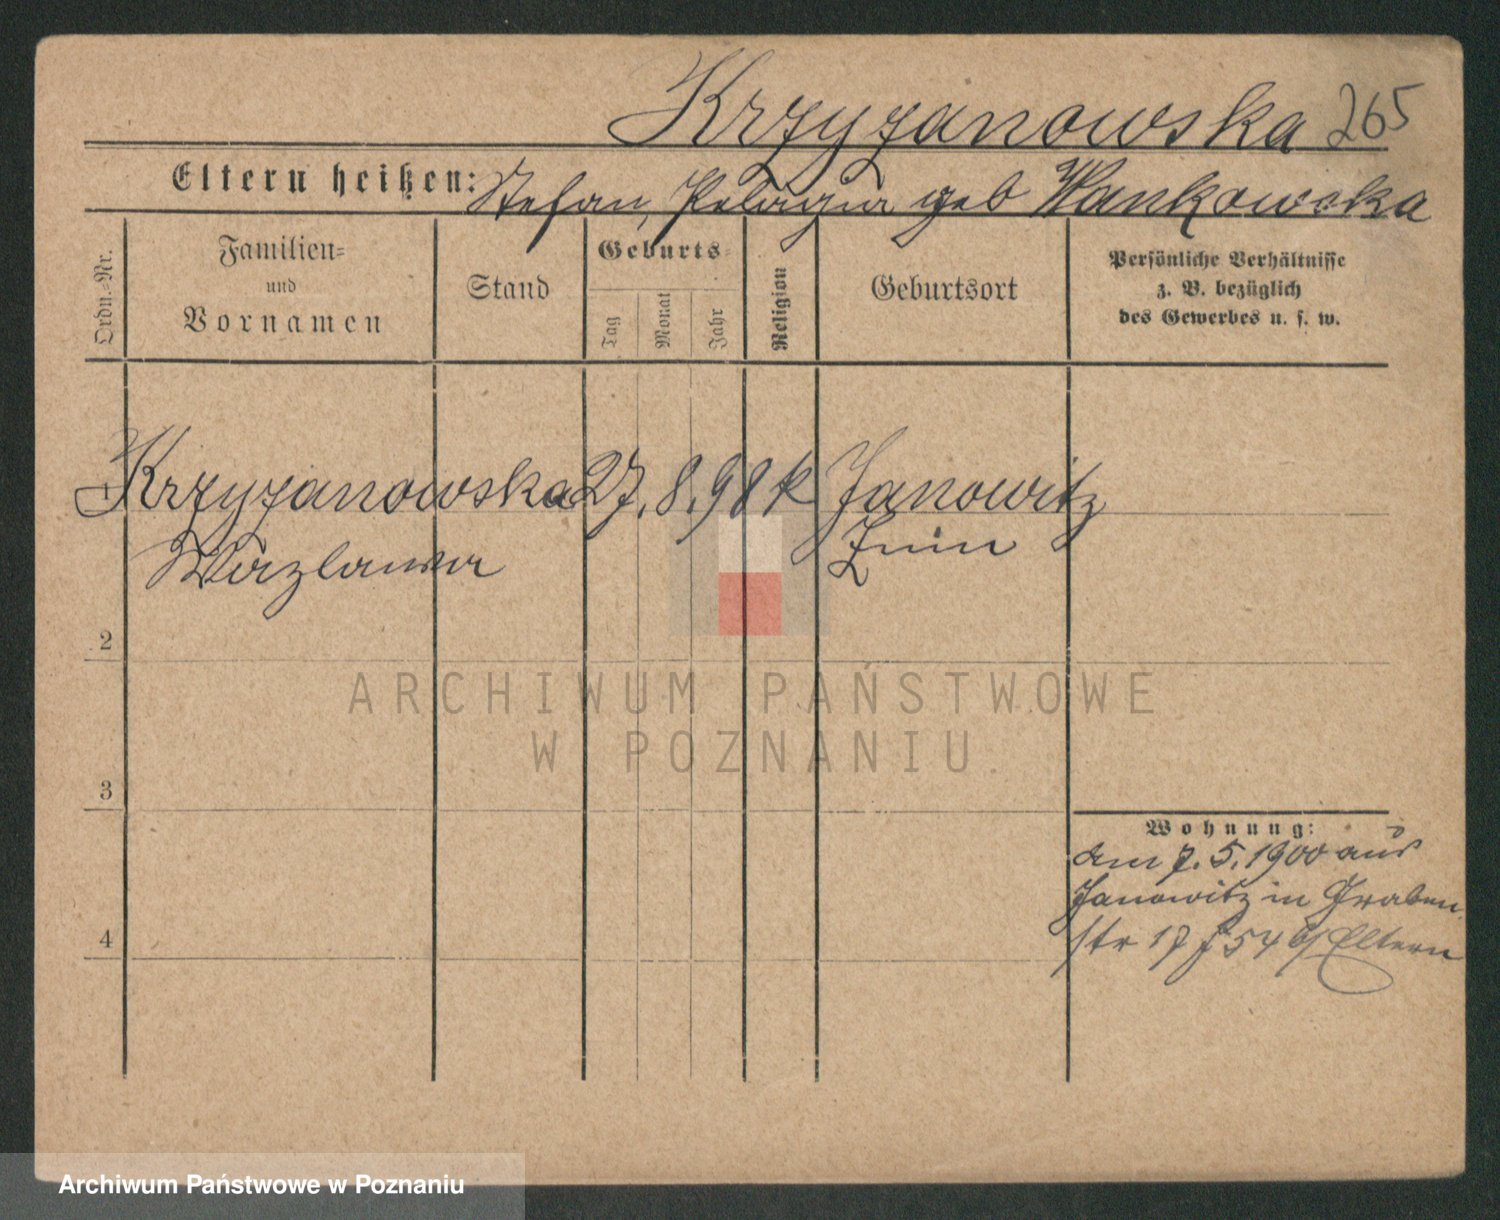 Krzyzanowska 265
Eltern heißen: Stefan, Pelagia geb Wankowska
Ordn.-Nr.
Familien-
und
Vornamen
Stand
Geburts-
Tag
Monat
Jahr
Religion
Geburtsort
Persönliche Verhältnisse
z. B. bezüglich
des Gewerbes u. s. w.
1 Krzyzanowska 27. 8. 98 k Janowitz
Wazlawa Znin
2
ARCHIWUM PAŃSTWOWE
W POZNANIU
3
Wohnung:
am 7. 5. 1900 aus
Janowitz in Graben
4
str 17 f 54 b/ Eltern
Archiwum Państwowe w Poznaniu